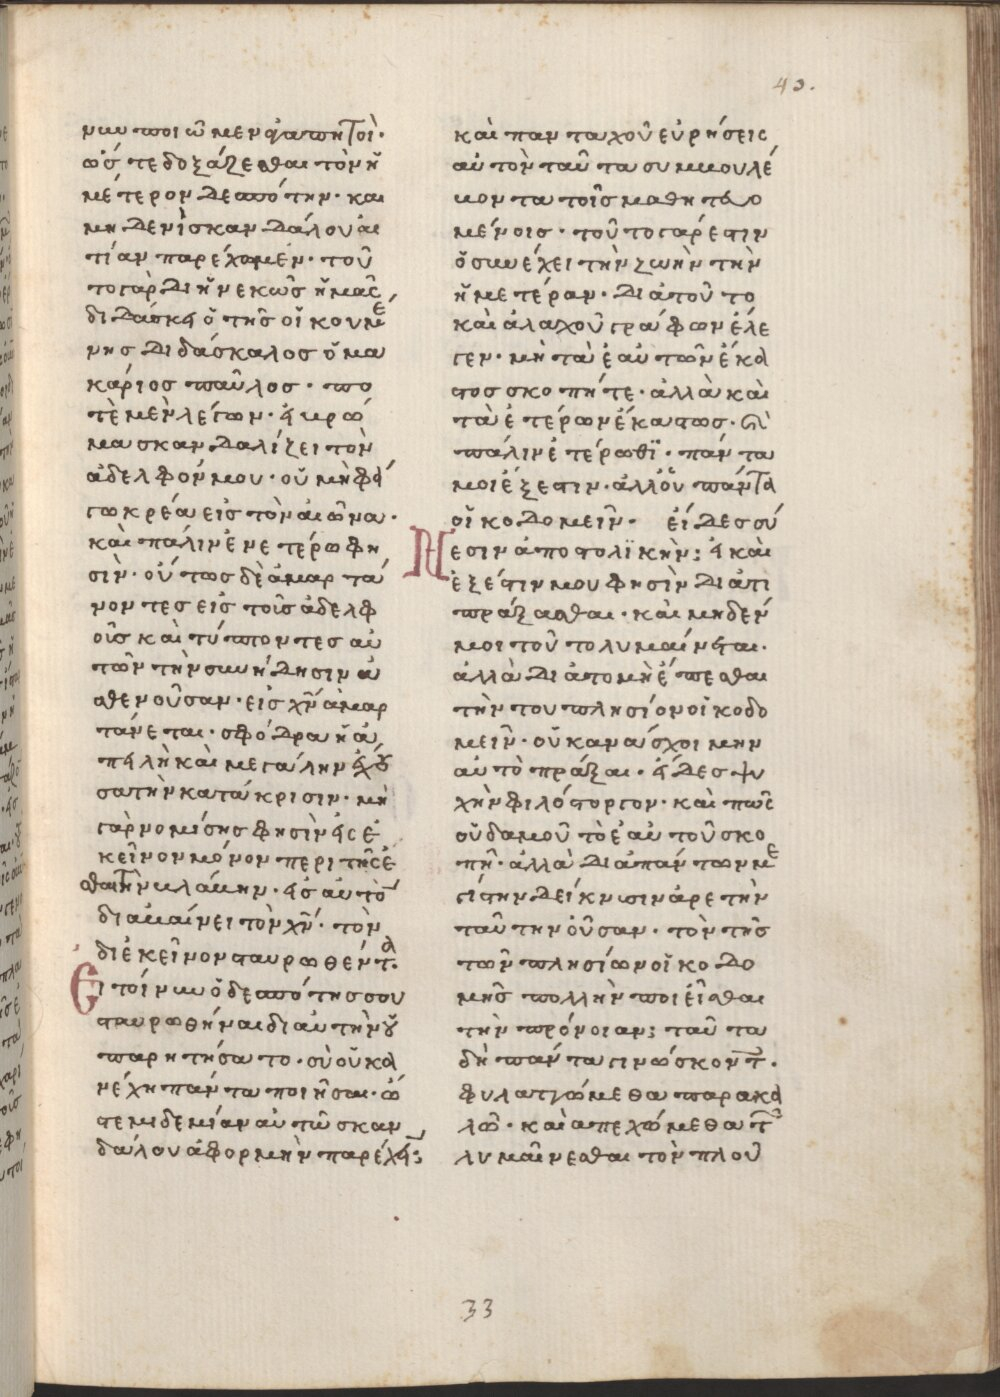 43.
νυν ποιῶμεν ἀγαπητοὶ·
ὥστε δοξάζεσθαι τὸν ἡ
μέτερον δεσπότην· και
μη δενὶ σκανδάλου αι
τίαν παρέχομεν· τοῦ
το γὰρ διηνεκῶς ἡμᾶς
διδάσκει ὁ τῆς οἰκουμέ
νης διδάσκαλος ὁ μα
κάριος παῦλος· πο
τὲ μὲν λέγων· εἰ βρῶ
μα σκανδαλίζει τὸν
ἀδελφόν μου· οὐ μὴ φά
γω κρέα εἰς τὸν αἰῶνα·
καὶ πάλιν ἐν ετέρω φη
σὶν· οὕτως δὲ ἁμαρτά
νοντες εἰς τοῖς ἀδελφ
οῖς καὶ τύπτοντες αὐ
τῶν τὴν συνήδησιν ἀ
σθενοῦσαν· εἰς χν̄ ἁμαρ
τάνεται· σφόδρα ἡ ἀ
πειλὴ καὶ μεγάλην ἔχου
σα τὴν κατάκρισιν· μὴ
γὰρ νομίσης φησὶν εἰς ἐ
κεῖνον μόνον περιτῆς ἐ
σθαι τὴν βλάβην· εἰς αὐτὸ
διαβαίνει τὸν χν̄· τὸν
δι ἐκεῖνον σταυρωθέντα.
Εἰ τοίνυν ὁ δεσπότης σου
σταυρωθῆναι δι αὐτὴν οὐ
παρητήσατο· σὺ οὐκ ἀ
νέχη πάντα ποιῆσαι· ὥ
στε μιδεμίαν αὐτῶ σκαν
δάλου ἀφορμὴν παρέχειν;
καὶ πανταχοῦ εὑρήσεις
αὐτὸν ταῦτα συμβουλέ
βοντα τοῖς μαθητεβο
μένοις· τοῦτο γάρ ἐστιν
ὃ συνέχει τὴν ζωὴν τὴν
ἡμετέραν· διὰ τοῦτο
καὶ ἀλαχοῦ γράφων ἔλε
γεν· μὴ τὰ ἑαυτῶν ἕκα
στος σκοπῆτε· ἀλλὰ καὶ
τὰ ἑτέρων ἕκαστως· καὶ
πάλιν ἑτέρωθϊ· πάντα
μοι ἔξεστιν· ἀλλ οὐ πάντα
οἰκοδομεῖν· εἶδες σύ
Νεσιν ἀποστολϊκὴν; εἰ καὶ
ἔξεστιν μου φησὶν διά τι
πράξασθαι· καὶ μηδέν
μοι τοῦτο λυμαίνεται·
ἀλλὰ διὰ το μὴ ἕπεσθαι
τὴν του πλησίον οἰκοδο
μεῖν· οὐκ ἀναίσχοιμην
αὐτὸ πράξαι· εἶδες ψυ
χὴν φιλόστοργον· καὶ πῶς
οὐδαμοῦ τὸ ἑαυτοῦ σκο
πῆ· ἀλλὰ διὰ πάντων με
γίστην δείκνυσιν ἀρετὴν
ταῦτην οὖσαν· τὸν τῆς
τῶν πλησίων οἰκοδο
μῆς πολλὴν ποιεῖσθαι
τὴν πρόνοιαν; ταῦτα
δὴ πάντα γινώσκοντες·
φυλαττώμεθα παρακα
λῶ· καὶ ἀπεχώμεθα τοῦ
λυμαῖνεσθαι τὸν πλοῦ
33